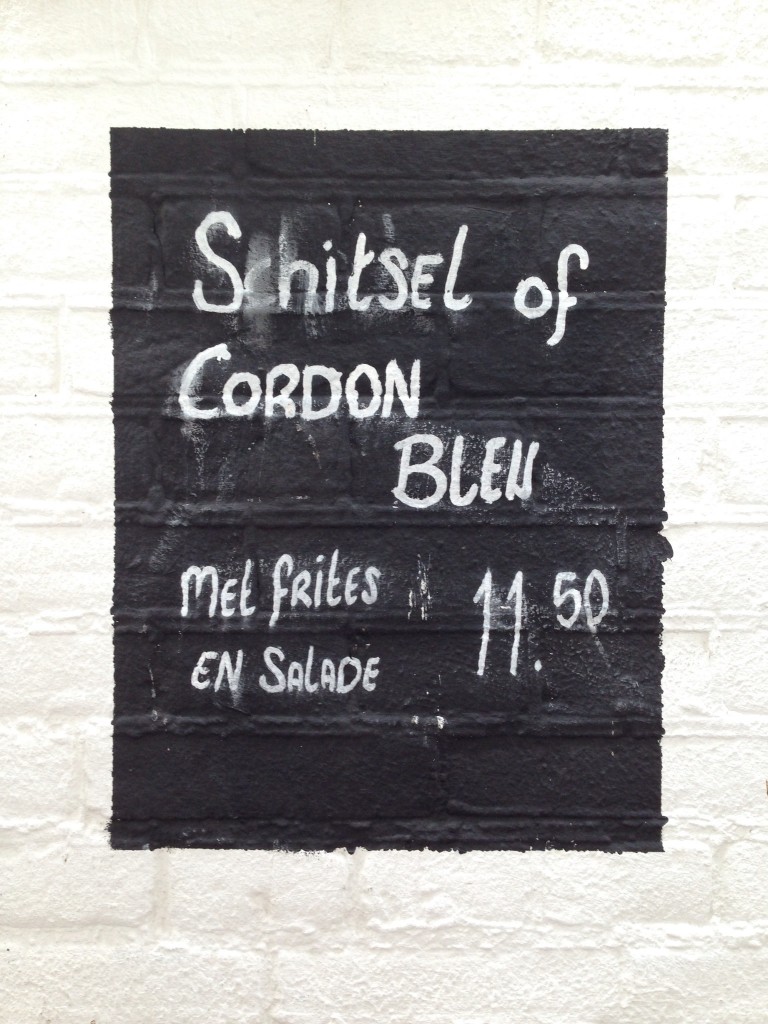 Schitsel of
CORDON
BLEU
Met frites 11.50
EN SALADE